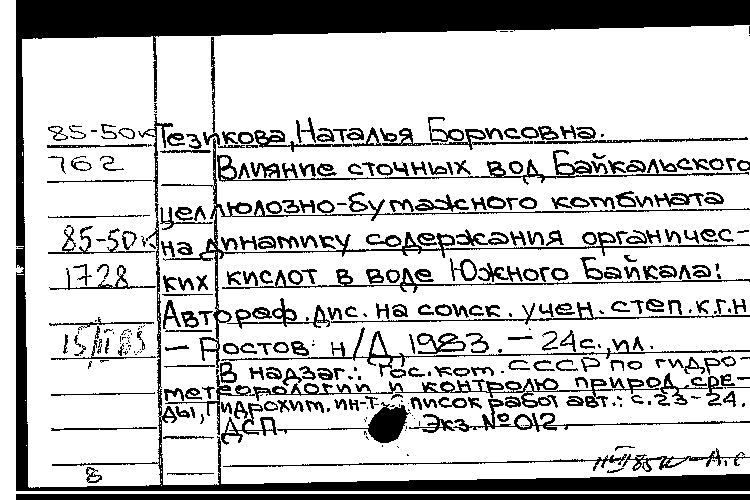 85-50к Тезикова, Наталья Борисовна.
762 Влияние сточных вод Байкальского
целлюлозно-бумажного комбината
85-50к на динамику содержания органичес-
1728 ких кислот в воде Южного Байкала:
Автореф. дис. на соиск. учен. степ. к.г.н
15/III 85 — Ростов н/Д, 1983. — 24с., ил.
В надзаг.: Гос. ком. СССР по гидро-
метеорологии и контролю природ. сре-
ды, Гидрохим. ин-т. Список работ авт.: с.23-24.
ДСП. Экз. №012.
8